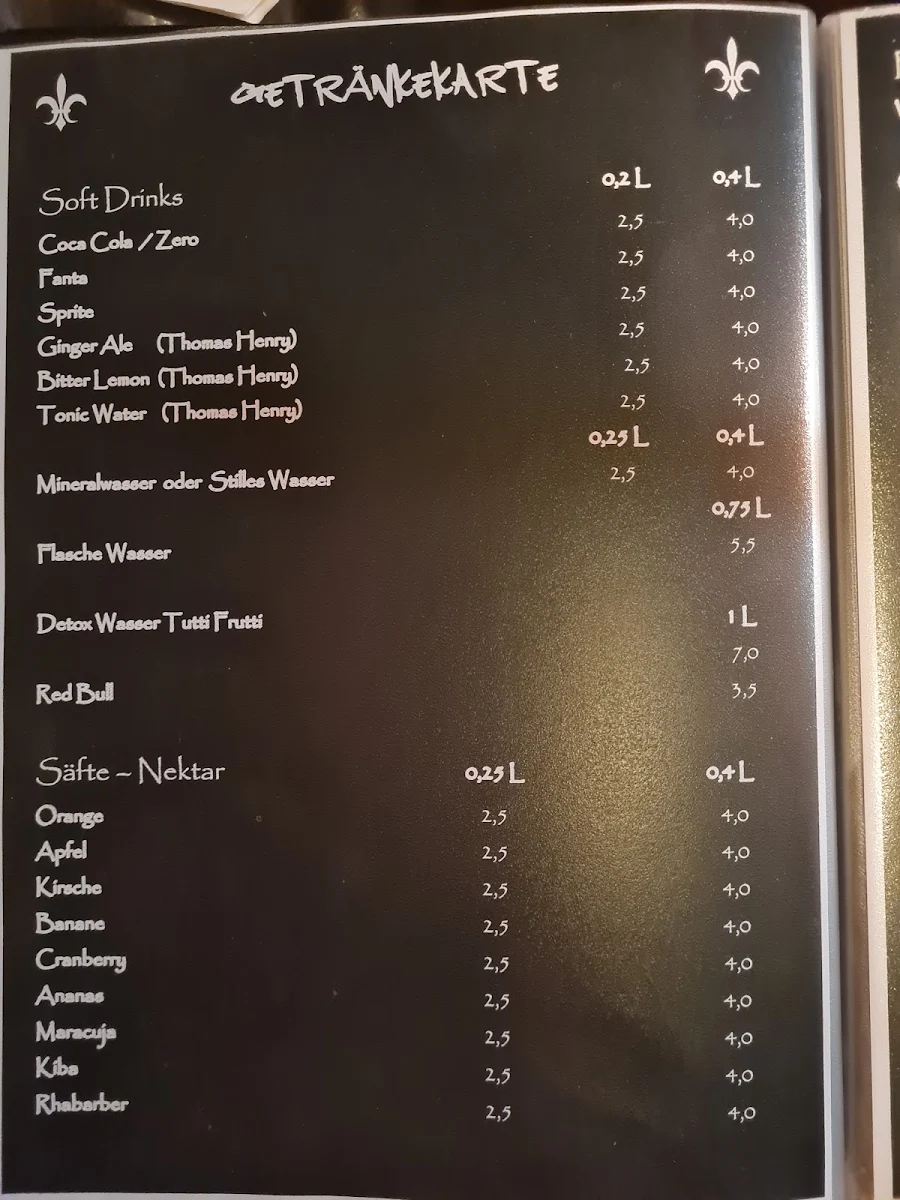 GETRÄNKEKARTE
Soft Drinks 0,2 L 0,4 L
Coca Cola / Zero 2,5 4,0
Fanta 2,5 4,0
Sprite 2,5 4,0
Ginger Ale (Thomas Henry) 2,5 4,0
Bitter Lemon (Thomas Henry) 2,5 4,0
Tonic Water (Thomas Henry) 2,5 4,0
0,25 L 0,4 L
Mineralwasser oder Stilles Wasser 2,5 4,0
0,75 L
Flasche Wasser 5,5
Detox Wasser Tutti Frutti 1 L
7,0
Red Bull 3,5
Säfte – Nektar 0,25 L 0,4 L
Orange 2,5 4,0
Apfel 2,5 4,0
Kirsche 2,5 4,0
Banane 2,5 4,0
Cranberry 2,5 4,0
Ananas 2,5 4,0
Maracuja 2,5 4,0
Kiba 2,5 4,0
Rhabarber 2,5 4,0